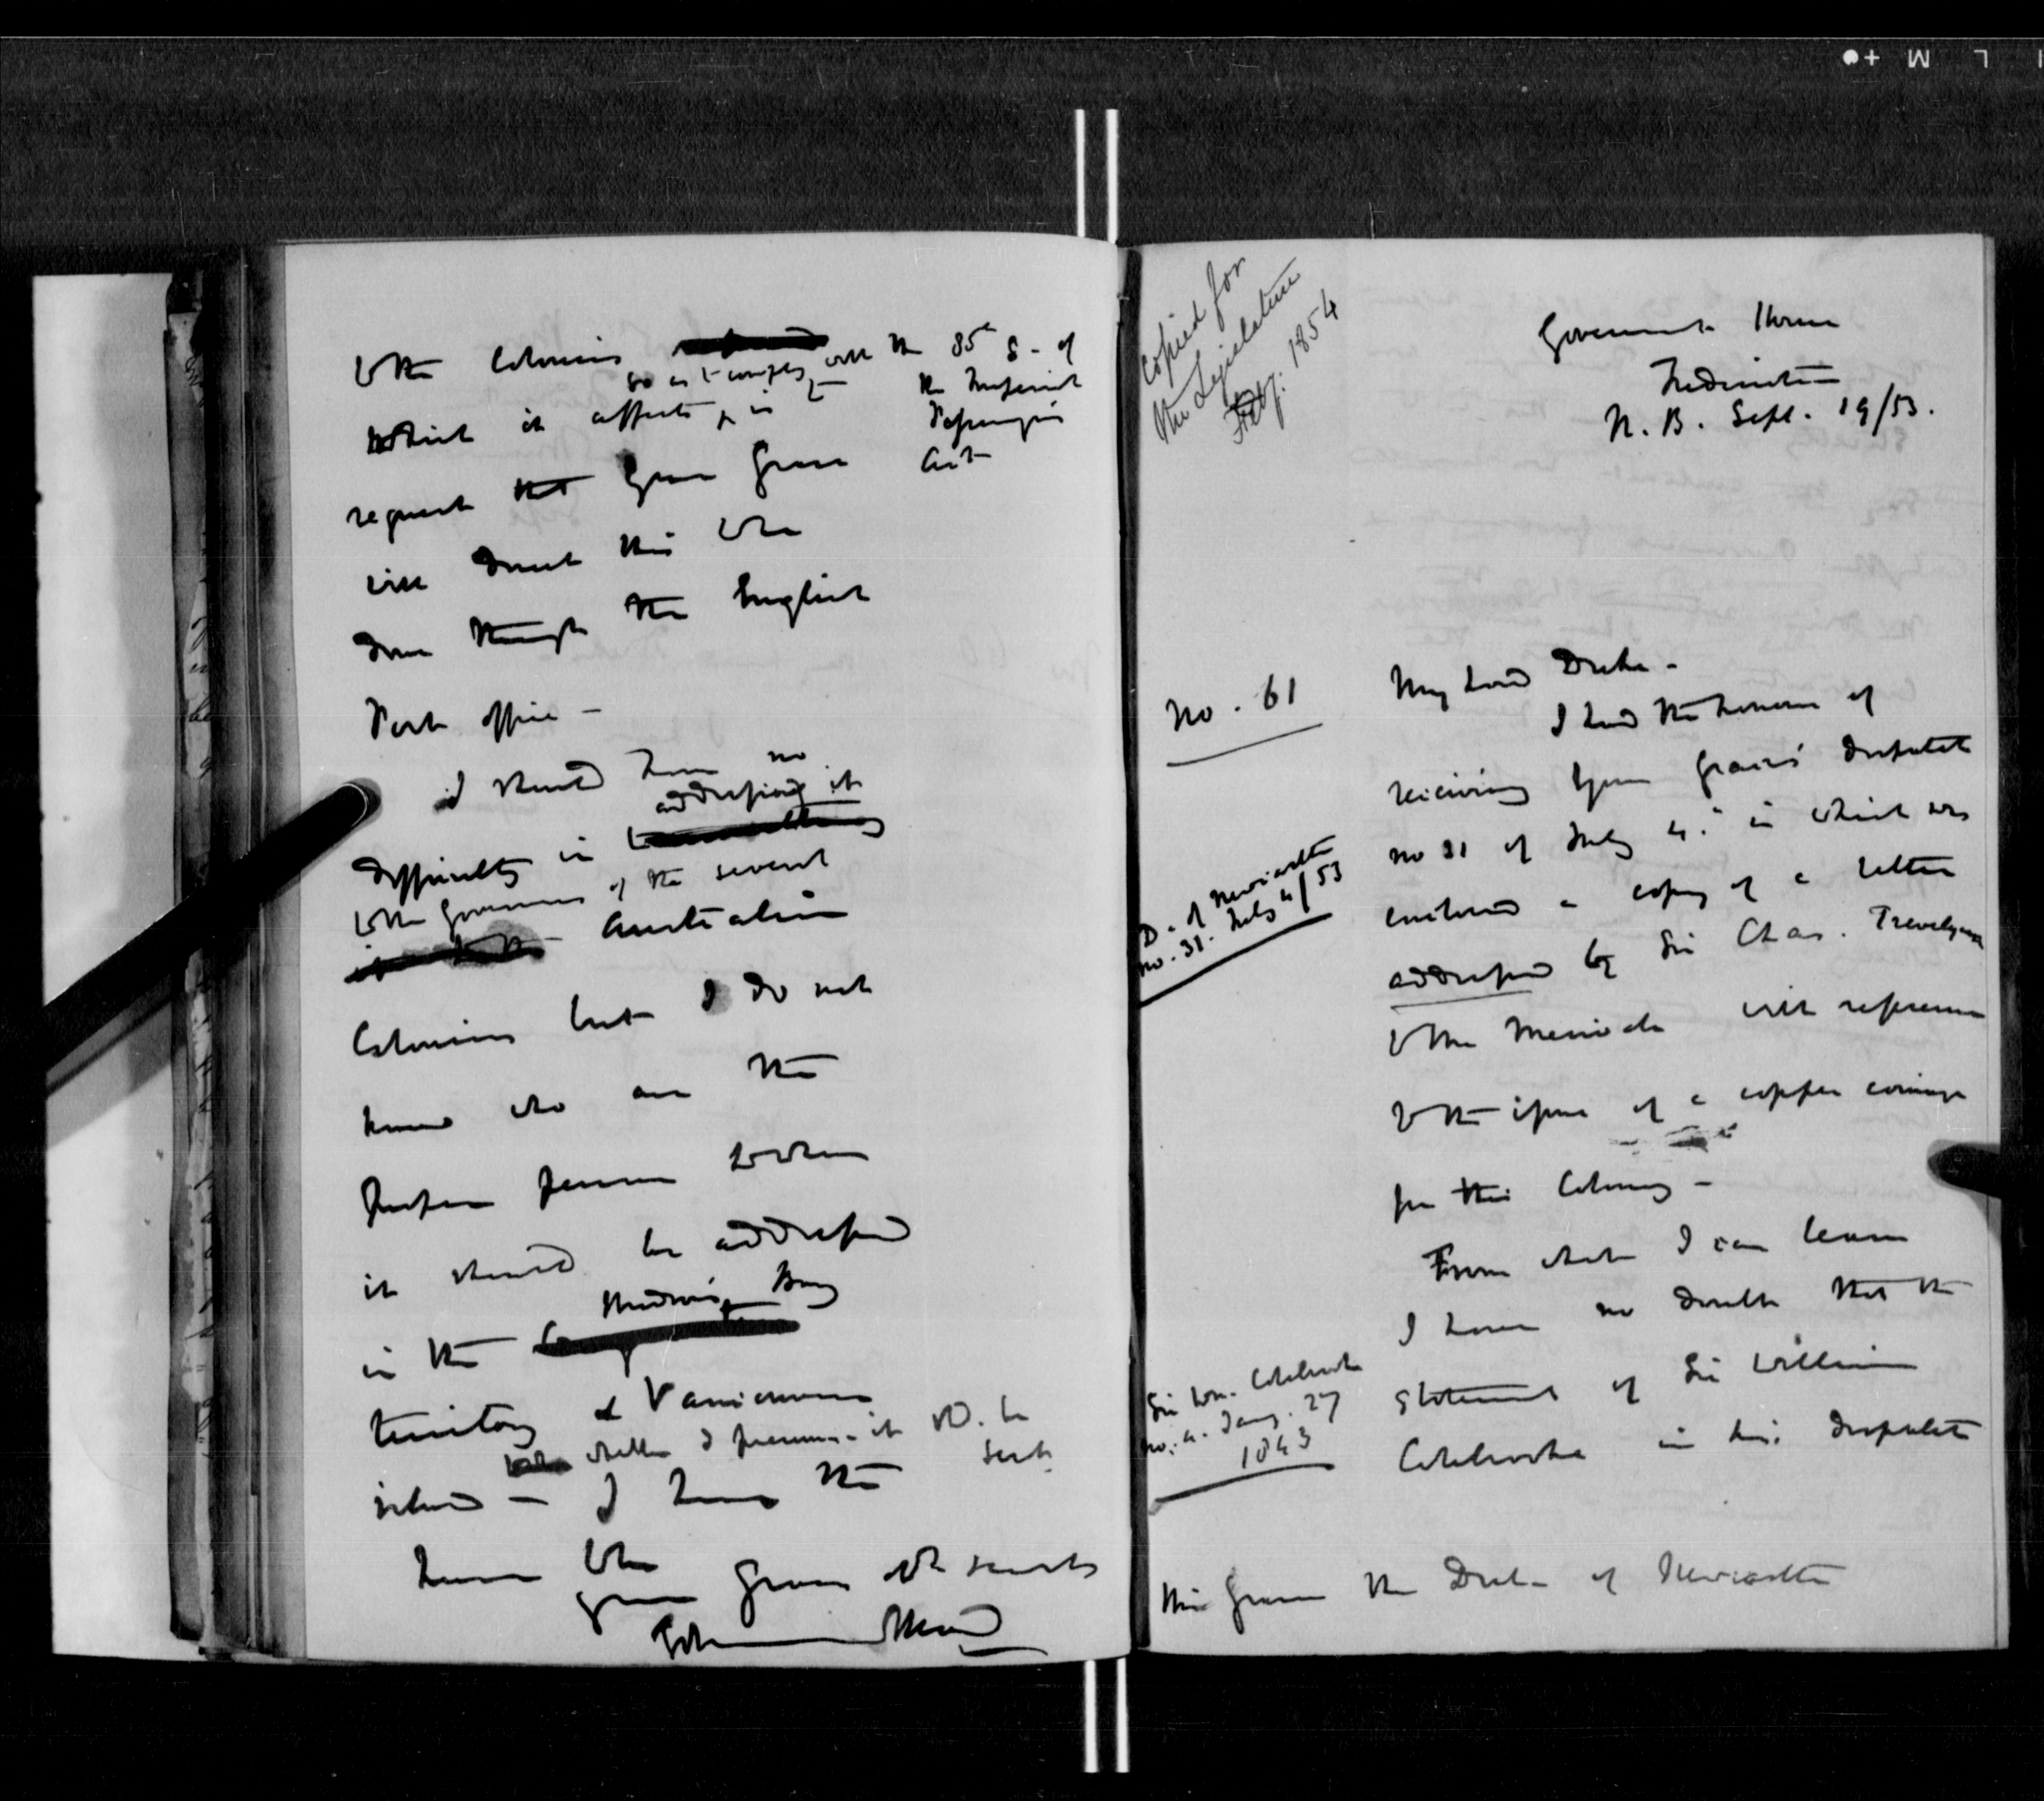 to the Colonies
so as to comply with the 35th S. of
the Imperial
Passengers
Act
which it affects, & in
request that Your Grace
will direct this to be
done through the English
Post office -
I should have no
addressing it
difficulty in
to the Governors of the several
Australian
Colonies but I do not
know who are the
proper persons to whom
it should be addressed
in the Hudson's Bay
territory & Vancouvers
whether I presume it shd. be
sent
island - I have the
honor to be
your Grace's obt servt
Edmund Head
Copied for
the Legislature
Feby. 1854
Government House
Fredericton
N. B. Sept. 19/53.
No. 61
My Lord Duke -
I had the honour of
receiving Your Grace's despatch
D. of Newcastle
no. 31. July 4/53
no 31 of July 4. in which was
enclosed a copy of a letter
addressed by Sir Chas. Trevelyan
to Mr Merivale with reference
to the issue of a copper coinage
for this Colony -
From what I can learn
I have no doubt that the
Sir Wm. Colebrooke
no. 4. Jany. 27
1843
statement of Sir William
Colebrooke in his despatch
His Grace the Duke of Newcastle